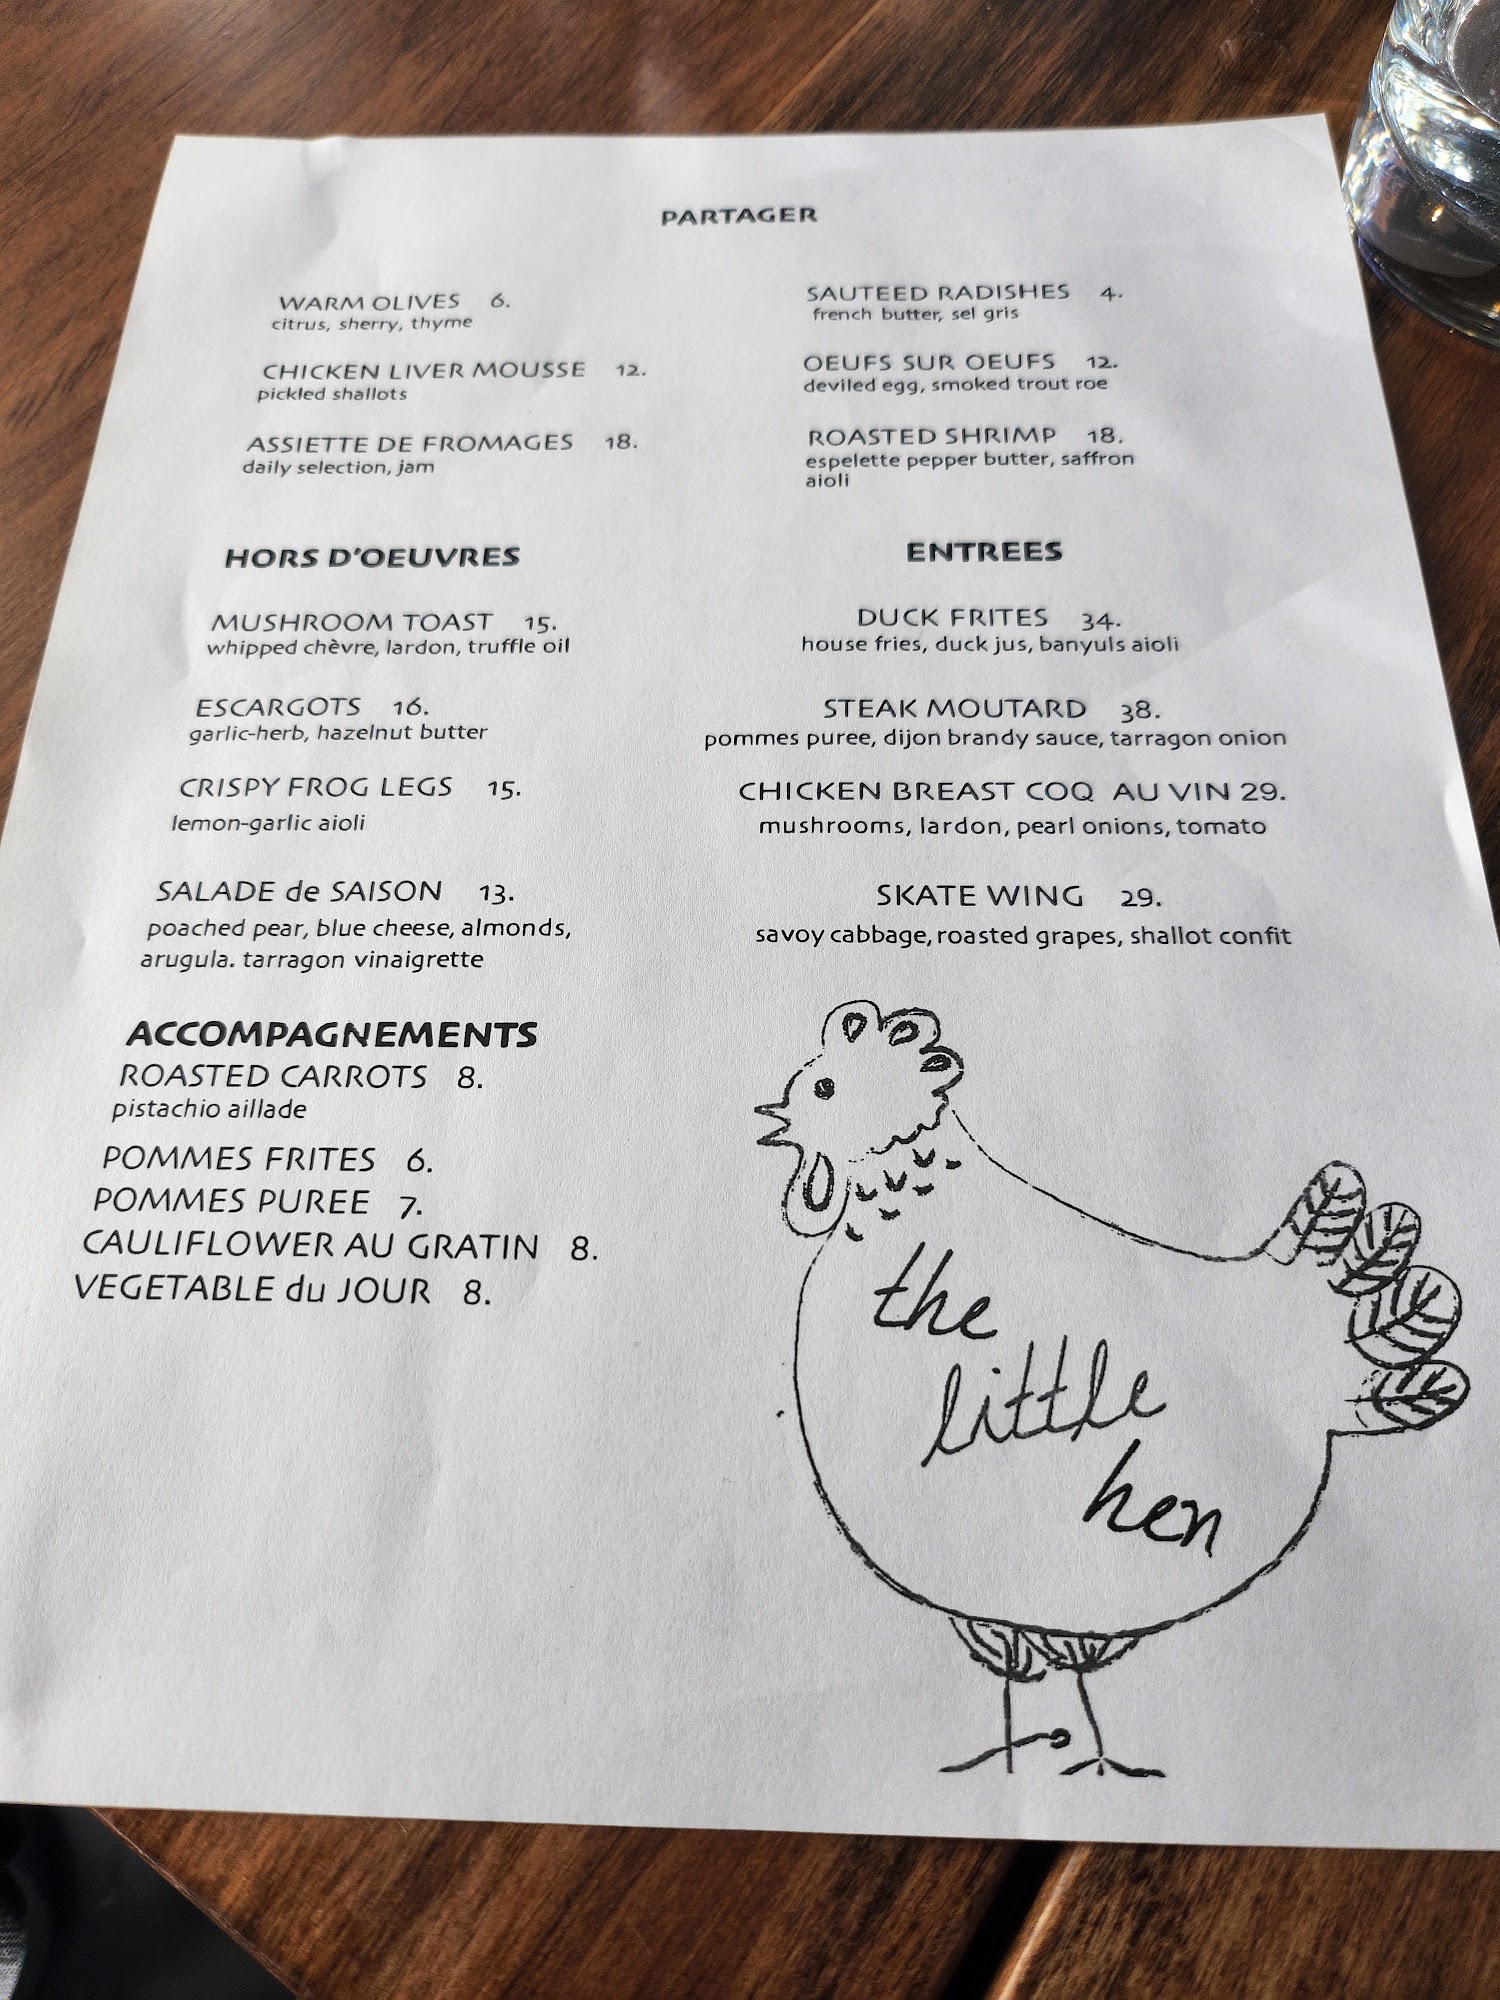 PARTAGER
WARM OLIVES 6.
citrus, sherry, thyme
CHICKEN LIVER MOUSSE 12.
pickled shallots
ASSIETTE DE FROMAGES 18.
daily selection, jam
SAUTEED RADISHES 4.
french butter, sel gris
OEUFS SUR OEUFS 12.
deviled egg, smoked trout roe
ROASTED SHRIMP 18.
espelette pepper butter, saffron
aioli
HORS D'OEUVRES
MUSHROOM TOAST 15.
whipped chèvre, lardon, truffle oil
ESCARGOTS 16.
garlic-herb, hazelnut butter
CRISPY FROG LEGS 15.
lemon-garlic aioli
SALADE de SAISON 13.
poached pear, blue cheese, almonds,
arugula. tarragon vinaigrette
ACCOMPAGNEMENTS
ROASTED CARROTS 8.
pistachio aillade
POMMES FRITES 6.
POMMES PUREE 7.
CAULIFLOWER AU GRATIN 8.
VEGETABLE du JOUR 8.
ENTREES
DUCK FRITES 34.
house fries, duck jus, banyuls aioli
STEAK MOUTARD 38.
pommes puree, dijon brandy sauce, tarragon onion
CHICKEN BREAST COQ AU VIN 29.
mushrooms, lardon, pearl onions, tomato
SKATE WING 29.
savoy cabbage, roasted grapes, shallot confit
the
little
hen